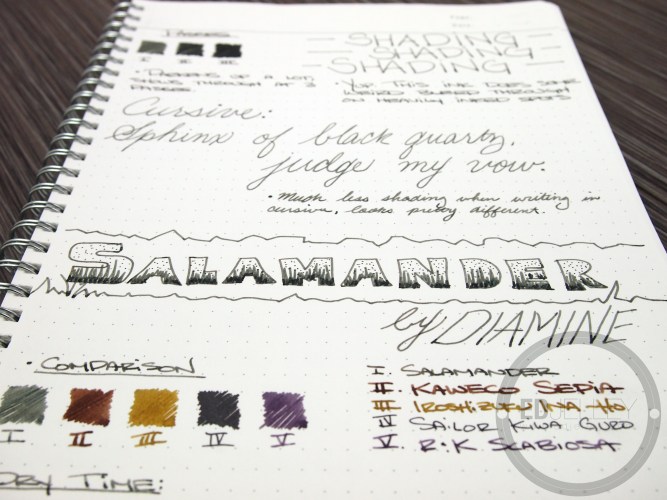 PASSES
I II III
SHADING
SHADING
SHADING
• DARKENS UP A LOT,
SHOWS THROUGH AT 3
PASSES.
• YUP. THIS INK DOES SOME
WEIRD BLEED THROUGH
ON HEAVILY INKED SPOTS
Cursive:
Sphinx of black quartz,
judge my vow.
• Much less shading when writing in
cursive, looks pretty different.
SALAMANDER
by DIAMINE
• COMPARISON
I II III IV V
I. SALAMANDER
II. KAWECO SEPIA
III. IROSHIZUKU INA HO
IV. SAILOR KIWA GURO
V. R+K SCABIOSA
DRY TIME:
ED JELLEY